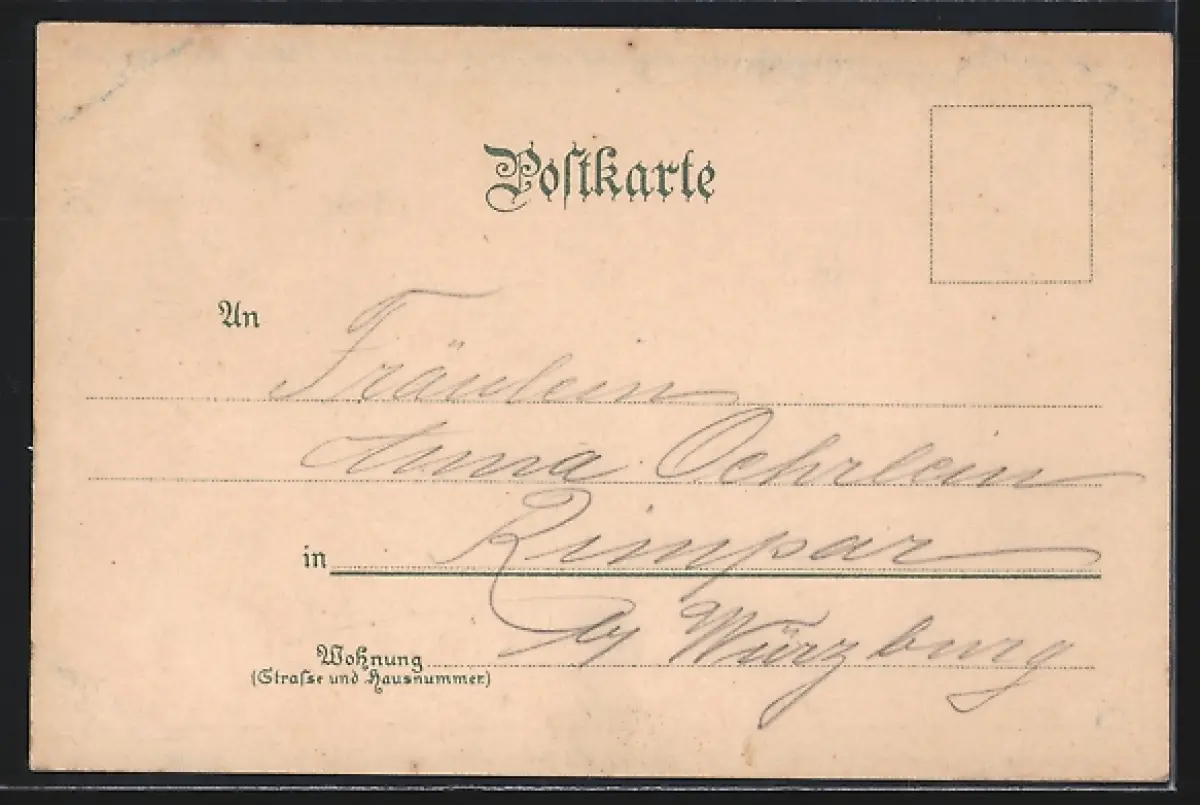 Postkarte
An
Fräulein
Anna Oehrlein
in Rimpar
by Würzburg
Wohnung
(Straſse und Hausnummer)